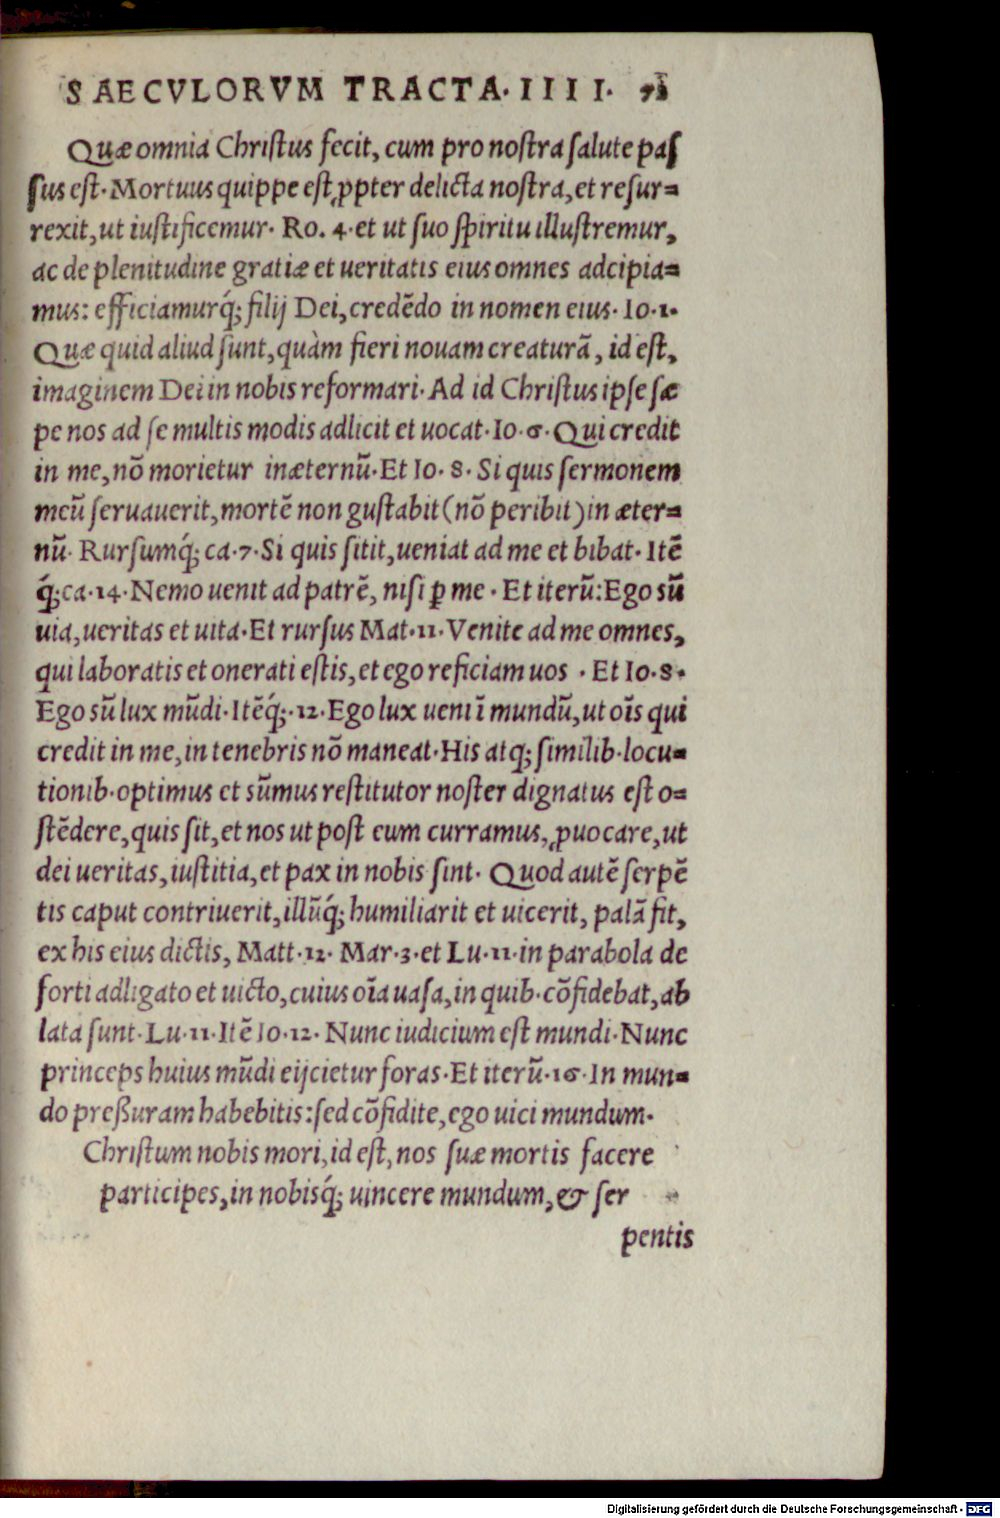 SAECVLORVM TRACTA. IIII. 71
Quæ omnia Christus fecit, cum pro nostra salute pas
sus est. Mortuus quippe est ꝓpter delicta nostra, et resur=
rexit, ut iustificemur. Ro. 4. et ut suo spiritu illustremur,
ac de plenitudine gratiæ et ueritatis eius omnes adcipia=
mus: efficiamurq́; filij Dei, credēdo in nomen eius. Io. 1.
Quæ quid aliud sunt, quàm fieri nouam creaturā, id est,
imaginem Dei in nobis reformari. Ad id Christus ipse sæ
pe nos ad se multis modis adlicit et uocat. Io. 6. Qui credit
in me, nō morietur in æternū. Et Io. 8. Si quis sermonem
meū seruauerit, mortē non gustabit (nō peribit) in æter=
nū. Rursumq́; ca. 7. Si quis sitit, ueniat ad me et bibat. Itē
q́; ca. 14. Nemo uenit ad patrē, nisi ꝑ me. Et iterū: Ego sū
uia, ueritas et uita. Et rursus Mat. 11. Venite ad me omnes,
qui laboratis et onerati estis, et ego reficiam uos. Et Io. 8.
Ego sū lux mūdi. Itēq́; 12. Ego lux ueni ī mundū, ut oīs qui
credit in me, in tenebris nō maneat. His atq; similib. locu=
tionib. optimus et sūmus restitutor noster dignatus est o=
stēdere, quis sit, et nos ut post eum curramus, ꝓuocare, ut
dei ueritas, iustitia, et pax in nobis sint. Quod autē serpē
tis caput contriuerit, illūq́; humiliarit et uicerit, palā fit,
ex his eius dictis, Matt. 12. Mar. 3. et Lu. 11. in parabola de
forti adligato et uicto, cuius oīa uasa, in quib. cōfidebat, ab
lata sunt. Lu. 11. Itē Io. 12. Nunc iudicium est mundi. Nunc
princeps huius mūdi eijcietur foras. Et iterū. 16. In mun=
do preßuram habebitis: sed cōfidite, ego uici mundum.
Christum nobis mori, id est, nos suæ mortis facere
participes, in nobisq́; uincere mundum, & ser
pentis
Digitalisierung gefördert durch die Deutsche Forschungsgemeinschaft - DFG